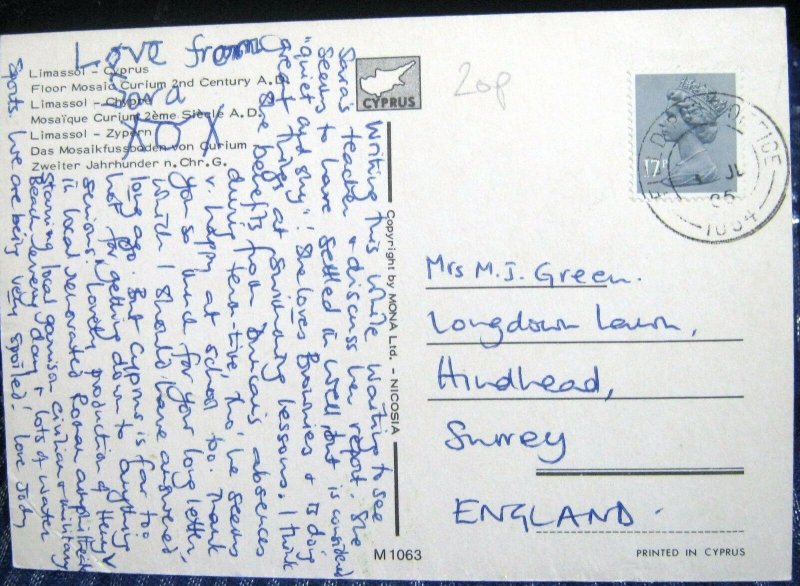 Limassol – Cyprus
Floor Mosaic Curium 2nd Century A.D.
Limassol – Chypre
Mosaïque Curium 2ème Siècle A.D.
Limassol – Zypern
Das Mosaikfussboden von Curium
Zweiter Jahrhundert n. Chr. G.
Love from
Sara
XOX
CYPRUS
Writing this while waiting to see
Sara's teacher & discuss her report. She
seems to have settled in well, but is considered
"quiet and shy"! She loves Brownies & is doing
great things at swimming lessons. I think
she benefits from Duncan's absences
during term-time, tho' he seems
v. happy at school too. Thank
you so much for your long letter,
which I should have answered
long ago. But Cyprus is far too
hot for getting down to anything
serious. Lovely production of Henry V
in local renovated Roman amphitheatre
starring local garrison civilian & military
Beach every day & lots of water
sports. We are being very spoiled! Love Judy
Copyright by MONA Ltd. – NICOSIA
M1063
20p
17P
FIELD POST OFFICE
JL
85
1034
Mrs M.J. Green.
Longdown Lawn,
Hindhead,
Surrey
ENGLAND.
PRINTED IN CYPRUS